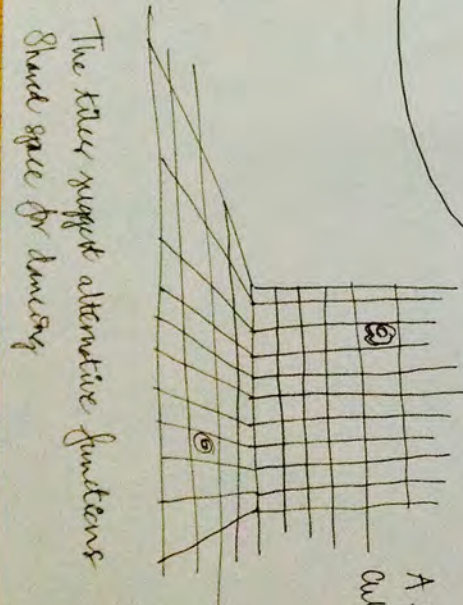 The tiles suggest alternative functions
Shared space for dancing
A